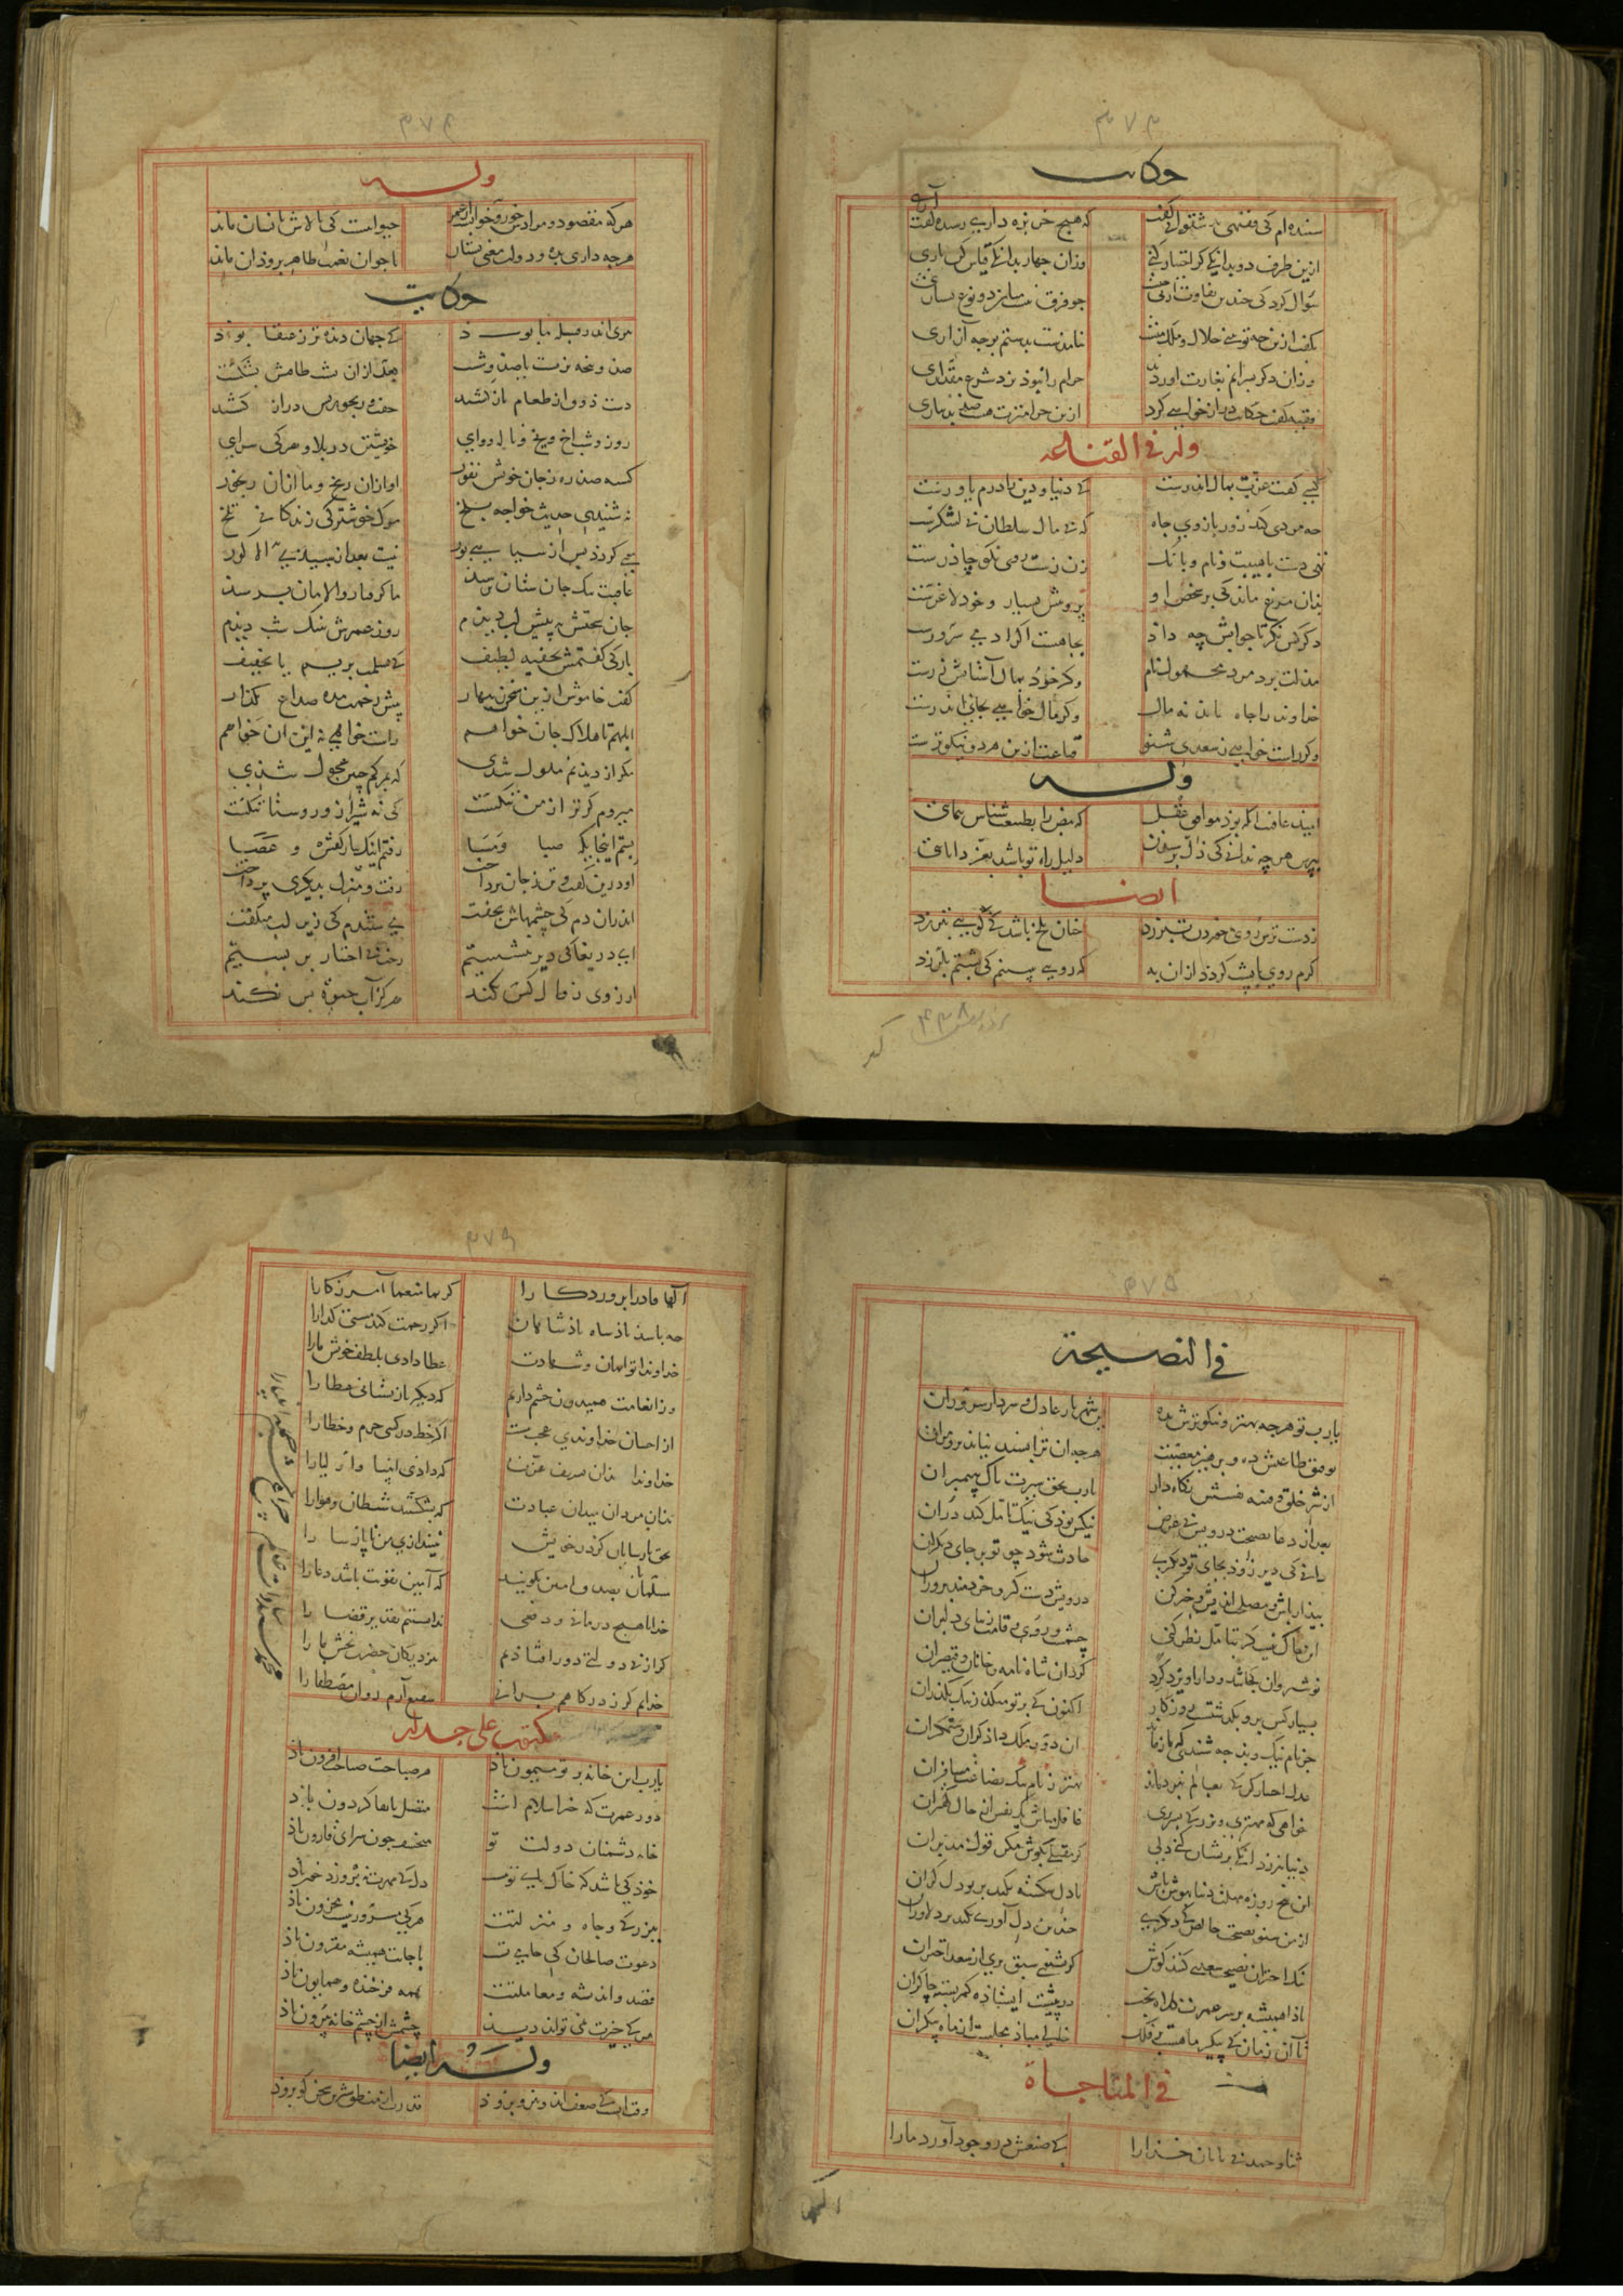 ۳۷۳
حکایت
شنیده‌ام که فقیهی بدشتوانی گفت
که هیچ خربزه داری رسیده گفت آری
ازین طرف دو بدانکی کر اختیار کنی
وزان چهار بدانکی قیاس کن باری
سوال کرد که چندین تفاوت از پی چیست
که فرق نیست میان دو نوع بسیاری
بکفت ازین چه تو بینی حلال و ملک منست
نیامدست بدستم بوجه آزاری
وزان دکر پسرانم بغارت آوردند
حرام را نبود نزد شرع مقداری
فقیه کفت حکایت دراز خواهی کرد
ازین حرامترت هست صد بدیناری
وله فی القناعه
یکی کفت عزت بمال اندرست
که دنیا و دین را درم یاورست
چه مردی کند زور بازوی جاه
که بی مال سلطان بی لشکرست
تهی دست با هیبت و نام و بانک
زن زشت روی نکو چادرست
بدان مرغ ماند که بر شخص او
پر و مش بسیار و خود لاغرست
دکر کس نکر تا جوابش چه داد
بجاهست اکر آدمی سرورست
مذلت برد مرد مجهول نام
وکر خود بمال آشناش زرست
خداوند را جاه باید نه مال
وکر مال خواهی بجاه اندرست
وکر راست خواهی ز سعدی شنو
قناعت ازین هر دو نیکوترست
وله
امید عافیت آنکه بود موافق عقل
که نبض را بطبیعت شناس بنمایی
بپرس هر چه ندانی که ذل پرسیدن
دلیل راه تو باشد بعز دانایی
ایضا
ز دست ترش روی خوردن تبرزد
چنان تلخ باشد که کویی تبرزد
کره روی با پشت کردند ازان به
که رویی ببینم که پشتم بلرزد
۴۳۸
۳۷۴
وله
هر که مقصود و مرادش خور و خوابست
حیوانیست که بالاش بانسان ماند
هر چه داری بده و دولت معنی بستان
تا جوان نعمت ظاهر برود آن ماند
حکایت
مردی اندر قبیله ما بود
که جهان دیده تر ز عنقا بود
صد و پنجه بزیست یا صد و شست
بعد ازان پشت طاقتش بشکست
دست ذوق از طعام باز کشید
خفت و رنجوریش دراز کشید
روز و شب آخ آخ و ناله و وای
خویشتن در بلا و هر که سرای
کشته صد ره ز جان خویش نفور
او ازان رنج و ما ازان رنجور
نشنیدی حدیث خواجه بلخ
مرک خوشتر که زندکانی تلخ
عاقبت پیک جان ستان برسید
ماکرفتار و الامان برسید
جان بسختیش پیش لب دیدم
روز عمرش بتنک شب دیدم
بارکی کفتمش بخفیه لطیف
که طبیب بر سرم یا بخفیف
کفت خاموش ازین سخن زنهار
بیش زحمت مده صداع کذار
ابلهم تا هلاک جان خواهم
راست خواهی نه این نه آن خواهم
مکر از دیدنم ملول شدی
که بمرکم چنین عجول شدی
میروم کر ترا ز من ننکست
که نه شیراز و روستا تنکست
بستم اینجایکه صبا و مسا
رفتم اینک بیار کفش و عصا
او درین کفت و تن ز جان پرداخت
رفت و منزل بدیکری پرداخت
اندران دم که چشمهاش بخفت
می‌شنیدم که زیر لب میکفت
ای دریغا که دیر ننشستیم
رخت بی اختیار بر بستیم
آرزوی زوال کس نکند
هرکز آب حیوة بس نکند
۳۷۵
فی النصیحة
یارب تو هر چه بهتر و نیکوترش بده
این شهریار عادل و سردار سروران
توفیق طاعتش ده و پرهیز معصیت
هر چه آن ترا پسند نیاید بر وی مران
از شر خلق و فتنه نفسش نکاه دار
یارب بحق سیرت پاک پیمبران
بعد از دعا نصیحت درویش بی غرض
نیکش بود که نیک تامل کند دران
دانی که دیر زود بجای تو دیکری
حادث شود چو تو بر جای دیکران
بیدار باش و مصلحت اندیش و خیر کن
درویش دست کیر و خردمند پروران
این خاک نیست کر بتامل نظر کنی
چشمست و روی و قامت زیبای دلبران
نوشیروان کجا شد و دارا و یزدکرد
کردان شاهنامه و خانان و قیصران
بسیار کس برو بکذشتست روزکار
اکنون که بر تو میکذرد نیک بکذران
جز نام نیک و بد چه شنیدی که باز ماند
از دور ملک دادکران و ستمکران
عدل اختیار کن که بعالم نبرده‌اند
بهتر ز نام نیک بضاعت مسافران
دنیا نیرزد آنکه پریشان کنی دلی
کر مقبلی بکوش مکن قول مدبران
این پنج روزه مهلت دنیا بهوش باش
نیک اختران نصیحت سعدی کنند کوش
کر بشنوی سبق بری از سعد اختران
بادا همیشه بر سر عمرت کلاه بخت
در پیشت ایستاده کمر بسته چاکران
تا آن زمان که پیکر ماهست بر فلک
خالی مباد مجلست از ماه پیکران
فی المناجاة
ثنا و حمد بی پایان خدا را
که صنعش در وجود آورد ما را
۳۷۶
الها قادرا پروردکارا
کریما منعما آمرزکارا
چه باشد پادشاه پادشاهان
اکر رحمت کند مشتی کدا را
خداوندا تو ایمان و شهادت
عطا دادی بلطف خویش ما را
وز انعامت همیدون چشم داریم
که دیکر باز نستانی عطا را
از احسان خداوندی عجب نیست
اکر خط در کشی جرم و خطا را
خداوندا بدان تشریف عزت
که دادی انبیا و اولیا را
بدان مردان میدان عبادت
که بشکستند شیطان و هوا را
بحق پارسایان کز در خویش
نیندازی من ناپارسا را
مسلمانان بصدق آمین بکویید
که آمین تقویت باشد دعا را
خدایا هیچ درمانی و دفعی
ندانستیم تقدیر قضا را
کر از بی دولتی دور اوفتادیم
بنزدیکان حضرت بخش ما را
خدایا کر ز درکاهم برانی
شفیع آرم روان مصطفی را
مکتوب علی جدار
یارب این خانه بر تو میمون باد
هر صباحت صباحی افزون باد
دور عمرت که خیر اسلام است
متصل با بقاء کردون باد
خانه دشمنان دولت تو
منخسف چون سرای قارون باد
بزرکی و جاه و منزلتت
هر که مسرور نیست محزون باد
دعوت صالحان که حاجتست
باجابت همیشه مقرون باد
قصد و اندیشه و معاملتت
همه فرخنده و همایون باد
هر که خیرت نمی تواند دید
چشمش از چشم خانه بیرون باد
وله ایضا